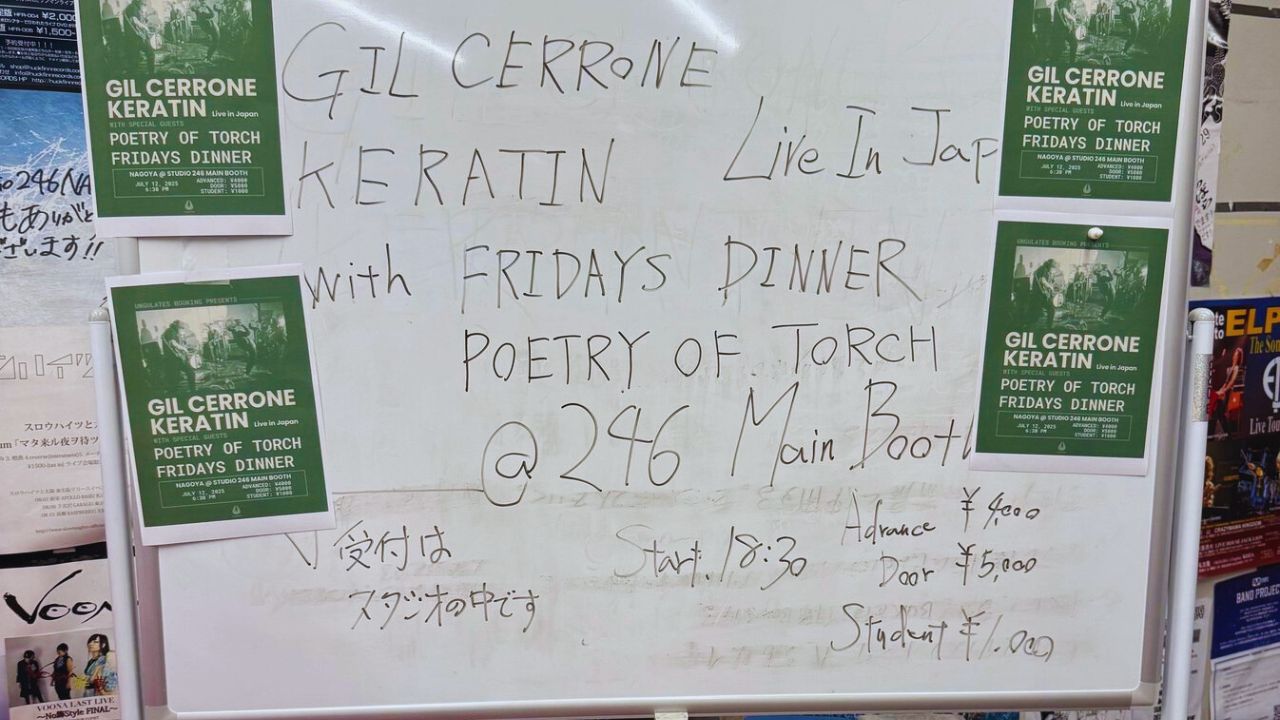 GIL CERRONE
KERATIN
Live In Jap
with FRIDAYS DINNER
POETRY OF TORCH
@ 246 Main Booth
受付は
スタジオの中です
Start. 18:30
Advance ¥4,000
Door ¥5,000
Student ¥1,000
GIL CERRONE
KERATIN Live in Japan
WITH SPECIAL GUESTS
POETRY OF TORCH
FRIDAYS DINNER
NAGOYA @ STUDIO 246 MAIN BOOTH
JULY 12, 2025
6:30 PM
ADVANCED: ¥4000
DOOR: ¥5000
STUDENT: ¥1000
UNGULATES BOOKING PRESENTS
GIL CERRONE
KERATIN Live in Japan
WITH SPECIAL GUESTS
POETRY OF TORCH
FRIDAYS DINNER
NAGOYA @ STUDIO 246 MAIN BOOTH
JULY 12, 2025
6:30 PM
ADVANCED: ¥4000
DOOR: ¥5000
STUDENT: ¥1000
GIL CERRONE
KERATIN Live in Japan
WITH SPECIAL GUESTS
POETRY OF TORCH
FRIDAYS DINNER
NAGOYA @ STUDIO 246 MAIN BOOTH
JULY 12, 2025
6:30 PM
ADVANCED: ¥4000
DOOR: ¥5000
STUDENT: ¥1000
UNGULATES BOOKING PRESENTS
GIL CERRONE
KERATIN Live in Japan
WITH SPECIAL GUESTS
POETRY OF TORCH
FRIDAYS DINNER
NAGOYA @ STUDIO 246 MAIN BOOTH
JULY 12, 2025
6:30 PM
ADVANCED: ¥4000
DOOR: ¥5000
STUDENT: ¥1000
HFR-004 ¥2,00
¥1,500-
246 NA
もありがと
ございます!!
スロウハイツと
「マタ来ル夜ヲ待ツ
VOON
VOONA LAST LIVE
ELP
The So
Live Tou
BAND PROJEC